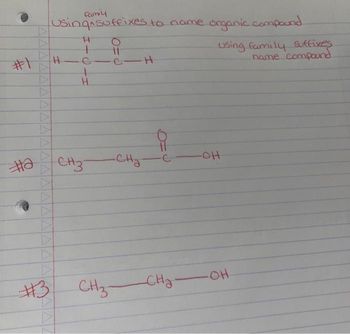 Family
Using ^ suffixes to name organic compound
using family suffixes
name compound
H O
#1 H — C — C — H
H
O
#2 CH3 — CH2 — C — OH
#3 CH3 — CH2 — OH